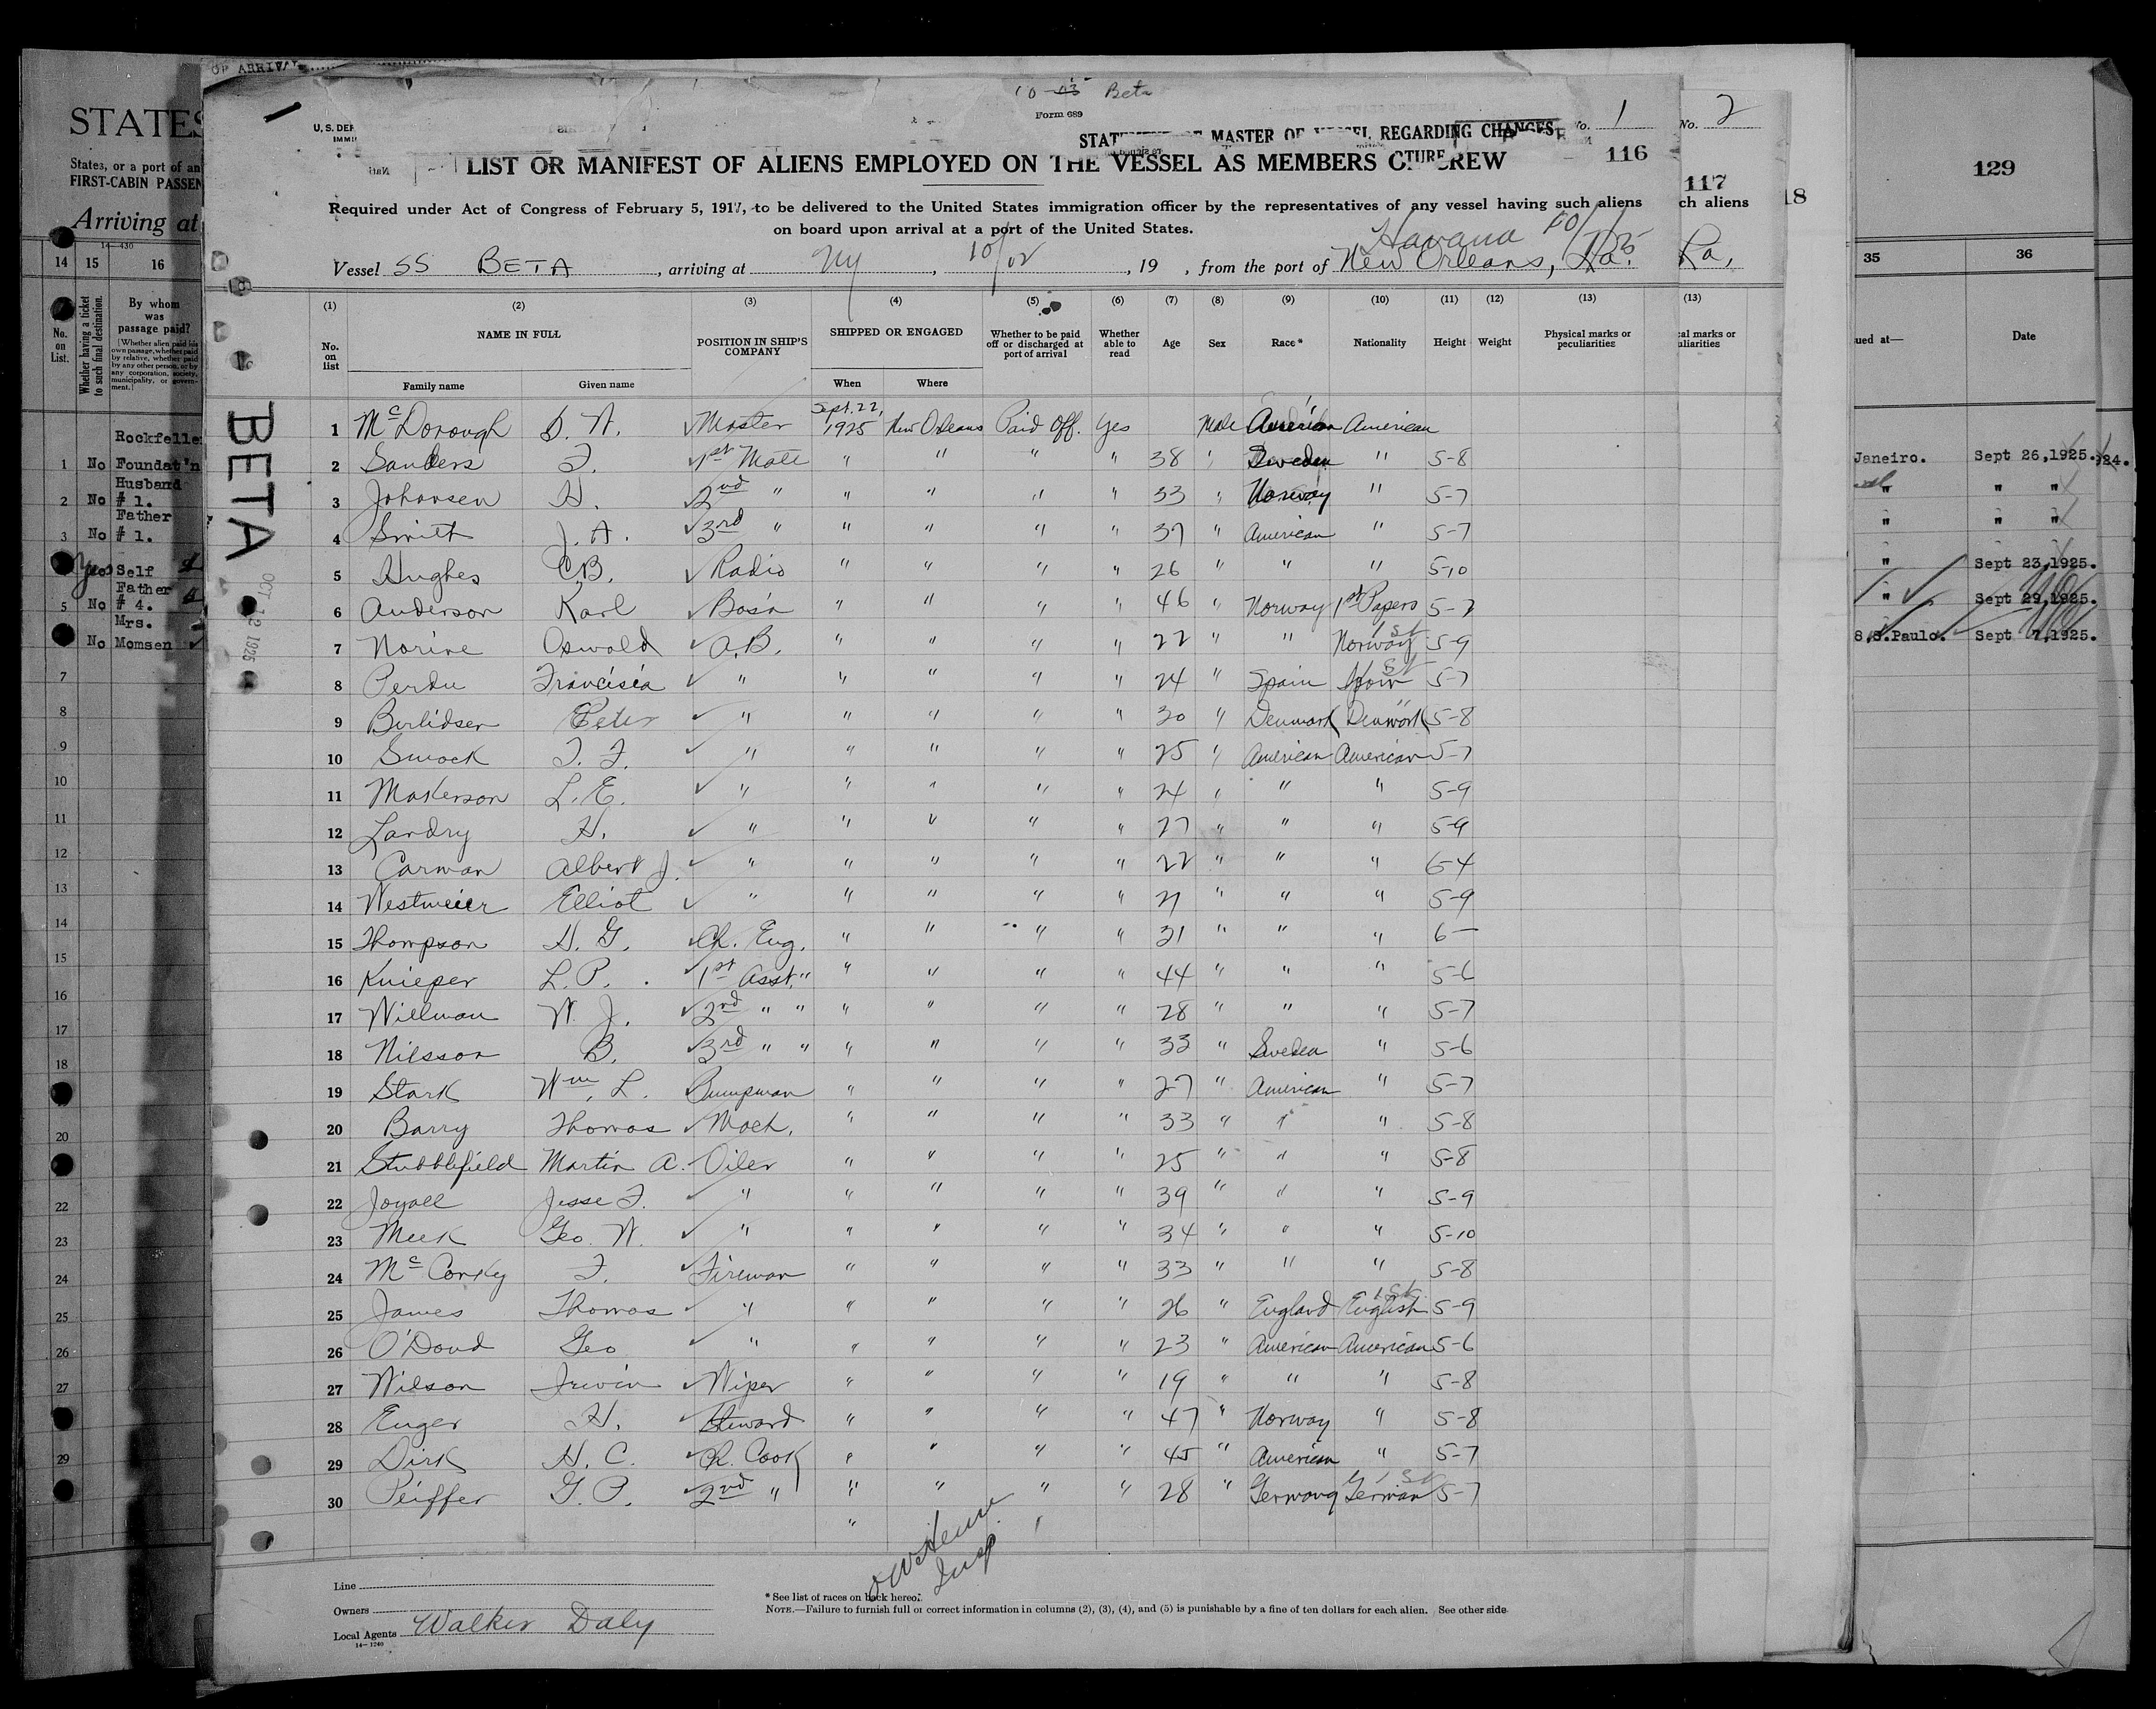 OF ARRIVAL
10-03 Beta
Form 689
U. S. DEP
IMMI
STATEMENT OF MASTER OF VESSEL REGARDING CHANGES
No. 1
No. 2
116
117
18
129
LIST OR MANIFEST OF ALIENS EMPLOYED ON THE VESSEL AS MEMBERS OF CREW
Required under Act of Congress of February 5, 1917, to be delivered to the United States immigration officer by the representatives of any vessel having such aliens
on board upon arrival at a port of the United States.
ch aliens
Havana
Vessel SS BETA, arriving at Ny, 10/02, 19 , from the port of New Orleans, La.
La,
(1) (2) (3) (4) (5) (6) (7) (8) (9) (10) (11) (12) (13)
No. on list NAME IN FULL Family name Given name POSITION IN SHIP'S COMPANY SHIPPED OR ENGAGED When Where Whether to be paid off or discharged at port of arrival Whether able to read Age Sex Race* Nationality Height Weight Physical marks or peculiarities
BETA
OCT 12 1925
1 McDorough D. W. Master Sept. 22, 1925 New Orleans Paid Off. Yes Male American American
2 Sanders F. 1st Mate " " " " 38 " Sweden " 5-8
3 Johansen H. 2nd " " " " " 33 " Norway " 5-7
4 Smith J. A. 3rd " " " " " 37 " American " 5-7
5 Hughes C.B. Radio " " " " 26 " " " 5-10
6 Anderson Karl Bos'n " " " " 46 " Norway 1st Papers 5-7
7 Norine Oswald A.B. " " " " 22 " " Norway 1st 5-9
8 Perdu Francisia " " " " " 24 " Spain Spain 1st 5-7
9 Berlidsen Peter " " " " " 30 " Denmark Denmark 5-8
10 Smock T. F. " " " " " 25 " American American 5-7
11 Makerson L. E. " " " " " 24 " " " 5-9
12 Landry H. " " " " " 27 " " " 5-9
13 Carman Albert J. " " " " " 22 " " " 6-4
14 Westmeier Elliot " " " " " 21 " " " 5-9
15 Thompson H. G. Ch. Eng. " " " " 31 " " " 6—
16 Knieper L. P. 1st Asst. " " " " " 44 " " " 5-6
17 Willman W. J. 2nd " " " " " " 28 " " " 5-7
18 Nilsson B. 3rd " " " " " " 33 " Sweden " 5-6
19 Stark Wm. L. Pumpman " " " " 27 " American " 5-7
20 Barry Thomas Mach. " " " " 33 " " " 5-8
21 Stubblefield Martin A. Oiler " " " " 25 " " " 5-8
22 Joyall Jesse F. " " " " " 39 " " " 5-9
23 Meek Geo. W. " " " " " 34 " " " 5-10
24 McConky F. Fireman " " " " 33 " " " 5-8
25 James Thomas " " " " " 26 " England English 1st 5-9
26 O'Doud Geo " " " " " 23 " American American 5-6
27 Wilson Irwin Wiper " " " " 19 " " " 5-8
28 Enger H. Steward " " " " 47 " Norway " 5-8
29 Dirk H. C. Ch. Cook " " " " 45 " American " 5-7
30 Peiffer G. P. 2nd " " " " " 28 " Germany German 1st 5-7
Insp
Line
Owners
Local Agents Walker Daly
14—1240
* See list of races on back hereof.
NOTE.—Failure to furnish full or correct information in columns (2), (3), (4), and (5) is punishable by a fine of ten dollars for each alien. See other side
STATES
States, or a port of an
FIRST-CABIN PASSEN
Arriving at
14—430
14 15 16
No. on List. Whether having a ticket to such final destination. By whom was passage paid? (Whether alien paid his own passage, whether paid by relative, whether paid by any other person, or by any corporation, society, municipality, or government.)
Rockfeller
1 No Foundat'n
Husband
2 No # 1.
Father
3 No # 1.
Yes No Self
Father
5 No # 4.
Mrs.
No Momsen
7
8
9
10
11
12
13
14
15
16
17
18
20
22
23
24
25
26
27
29
35 36
ued at— Date
(13)
cal marks or
uliarities
Janeiro. Sept 26,1925. 924.
" " "
" " "
" Sept 23,1925.
" Sept 29,1925.
S.Paulo. Sept 7,1925.